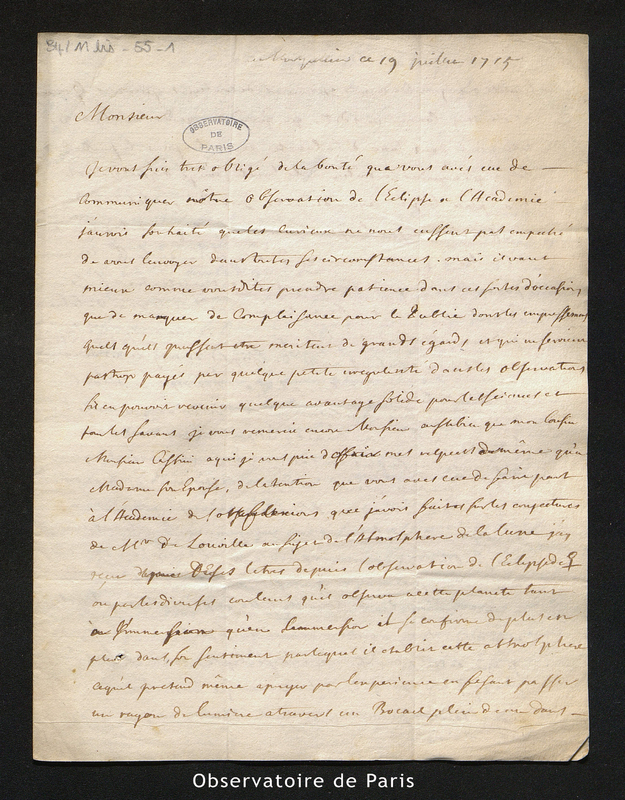 84/M bis - 55 - 1
ce 19 juillet 1715
Monsieur
OBSERVATOIRE
DE
PARIS
Je vous suis tres obligé de la bonté que vous avés eue de
communiquer nôtre Observation de l'Eclipse a l'Academie
j'aurois souhaité que les curieux ne nous eussent pas empeché
de vous l'envoyer dans toutes ses circomstances. mais il vaut
mieux comme vous dites prendre patience dans ces sortes d'occasions
que de manquer de Complaisance pour le Public dont les empressemens
quels qu'ils puissent etre meritent de grands égards, et qui ne seroient
pas trop payés par quelque petite irregularité dans les observations
s'il en pouvoit revenir quelque avantage solide pour les sciences et
pour les savans je vous remercie encore Monsieur aussi bien que mon Cousin
Monsieur Cassini a qui je vous prie d'offrir mes respects de même qu'a
Madame son Epouse, de l'attention que vous avés eue de faire part
à l'Academie de que j'avois faites sur les conjectures
de Mr. De Louville au sujet de l'Atmosphere de la lune j'ay
reçu letres depuis l'observation de l'Eclipse de ♀
ou par les diverses couleurs qu'il observa a cette planete tant
a l'Immersion qu'a l'emersion il se confirme de plus en
plus dans son sentiment par lequel il etablit cette atmosphere
ce qu'il pretend même apuyer par l'experience en fesant passer
un rayon de lumiere a travers un Bocail plein d'eau dans
Observatoire de Paris